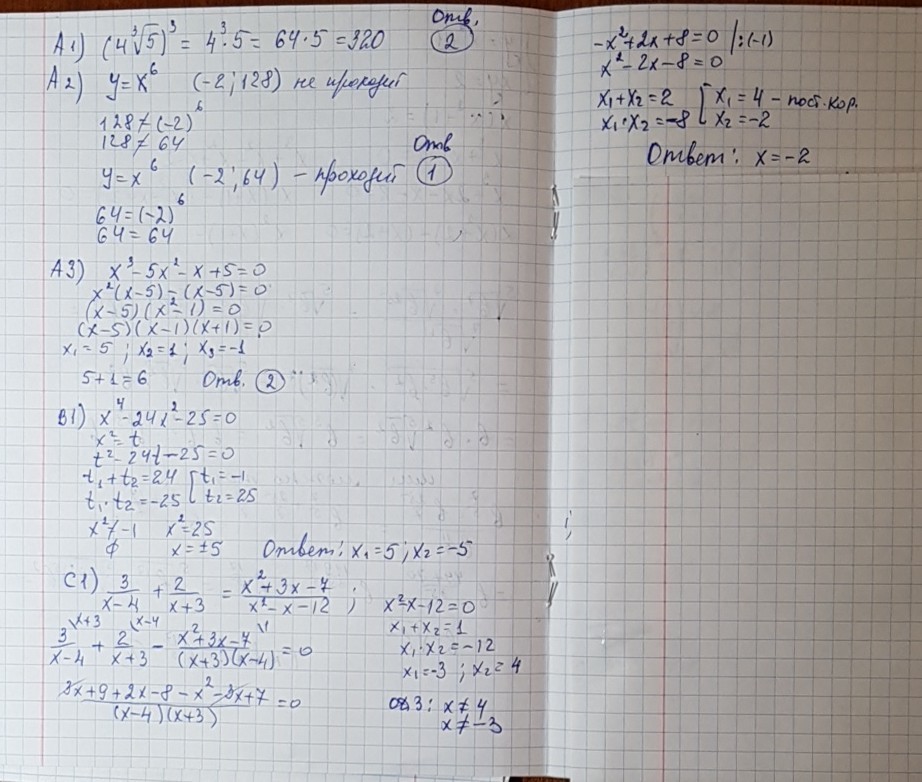 Отв.
А1) (4∛5)³ = 4³·5 = 64·5 = 320 (2)
А2) y=x⁶ (-2; 128) не проходит
128≠(-2)⁶
128≠64
Отв
y=x⁶ (-2; 64) – проходит (1)
64=(-2)⁶
64=64
А3) x³-5x²-x+5=0
x²(x-5)-(x-5)=0
(x-5)(x²-1)=0
(x-5)(x-1)(x+1)=0
x₁=5; x₂=1; x₃=-1
5+1=6 Отв. (2)
В1) x⁴-24x²-25=0
x²=t
t²-24t-25=0
t₁+t₂=24 [ t₁=-1
t₁·t₂=-25 [ t₂=25
x²≠-1 x²=25
∅ x=±5 Ответ: x₁=5; x₂=-5
С1) 3/(x-4) + 2/(x+3) = (x²+3x-7)/(x²-x-12);
3\x+3/(x-4) + 2\x-4/(x+3) - (x²+3x-7)\1/((x+3)(x-4)) = 0
(3x+9+2x-8-x²-3x+7)/((x-4)(x+3)) = 0
x²-x-12=0
x₁+x₂=1
x₁·x₂=-12
x₁=-3; x₂=4
ОДЗ: x≠4
x≠-3
-x²+2x+8=0 |:(-1)
x²-2x-8=0
x₁+x₂=2 [ x₁=4 – пост. кор.
x₁·x₂=-8 [ x₂=-2
Ответ: x=-2